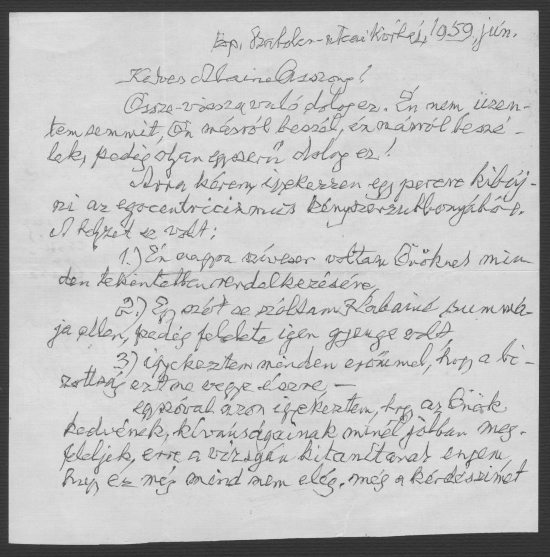 Bp. Szabolcs-utcai Kórház, 1959. jún.
Kedves Abainé Asszony!
Össze-vissza való dolog ez. Én nem üzen-
tem semmit, Ön másról beszél, én másról beszé-
lek, pedig olyan egyszerű dolog ez!
Arra kérem igyekezzen egy percre kibúj-
ni az egocentricizmus kényszerzubbonyából.
A helyzet ez volt:
1.) Én nagyon szívesen voltam Önöknek min-
den tekintetben rendelkezésére,
2.) Egy szót se szóltam Abainé summá-
ja ellen, pedig felelete igen gyenge volt
3.) igyekeztem minden erőmmel, hogy a bi-
zottság ezt ne vegye észre –
egyszóval azon igyekeztem, hogy az Önök
kedvének, kívánságainak minél jobban meg-
feleljek, erre a vizsgán kitanítanak engem,
hogy ez még mind nem elég, még a kérdéseimet